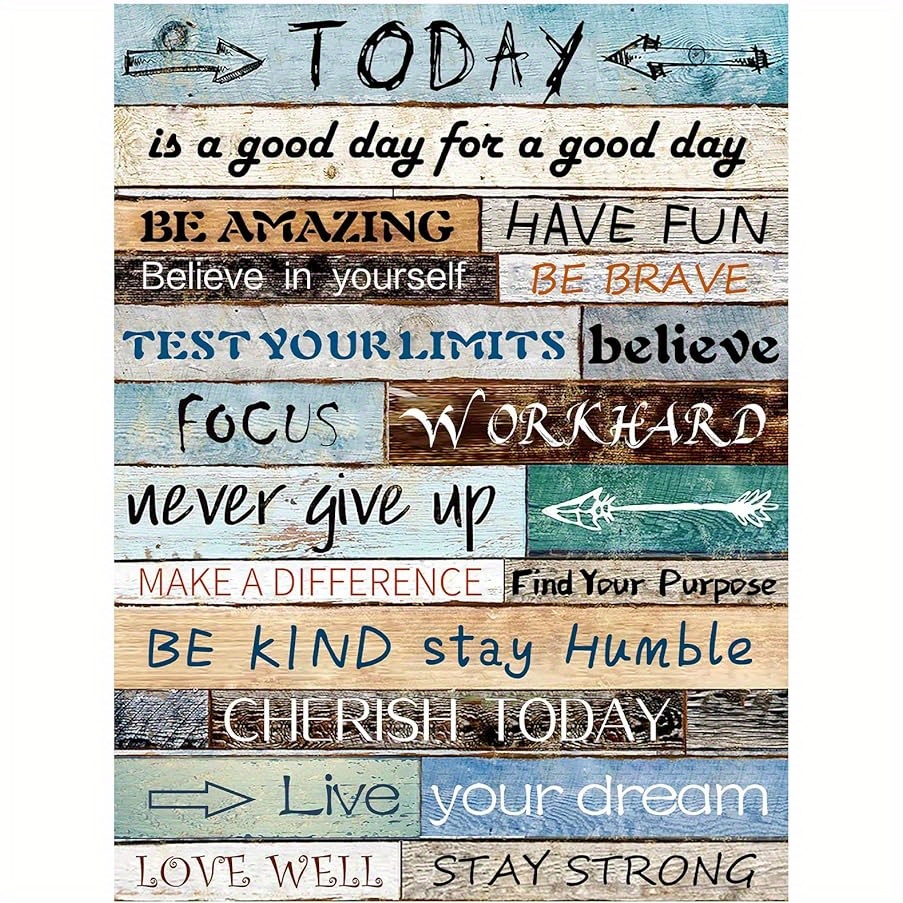 TODAY
is a good day for a good day
BE AMAZING HAVE FUN
Believe in yourself BE BRAVE
TEST YOUR LIMITS believe
FOCUS WORKHARD
never give up
MAKE A DIFFERENCE Find Your Purpose
BE KIND stay Humble
CHERISH TODAY
Live your dream
LOVE WELL STAY STRONG